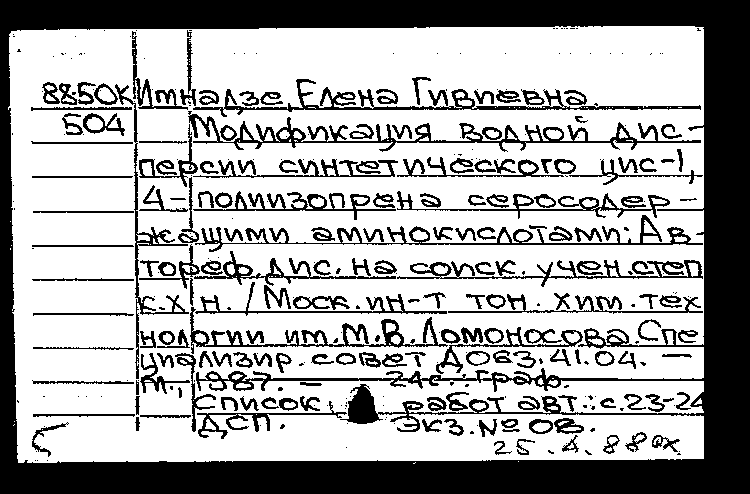 88-50К Имнадзе, Елена Гивиевна.
504 Модификация водной дис-
персии синтетического цис-1,
4-полиизопрена серосодер-
жащими аминокислотами: Ав-
тореф. дис. на соиск. учен. степ
к.х.н. / Моск. ин-т тон. хим. тех
нологии им. М.В. Ломоносова. Спе
циализир. совет Д 063.41.04. —
М., 1987. — 24 с.: граф.
Список работ авт.: с. 23-24
ДСП. Экз. № 08.
25.4.88